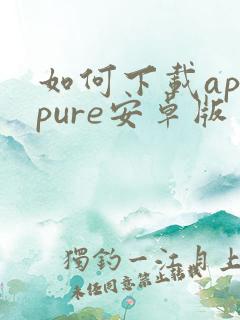 如何下载ap
pure安卓版
獨釣一江月上
未经同意禁止转载